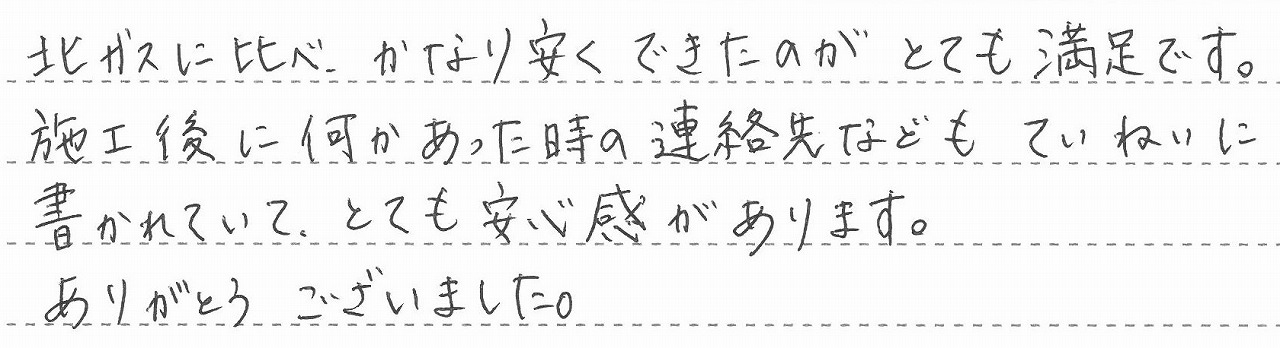 北ガスに比べ、かなり安くできたのがとても満足です。
施工後に何かあった時の連絡先などもていねいに
書かれていて、とても安心感があります。
ありがとうございました。